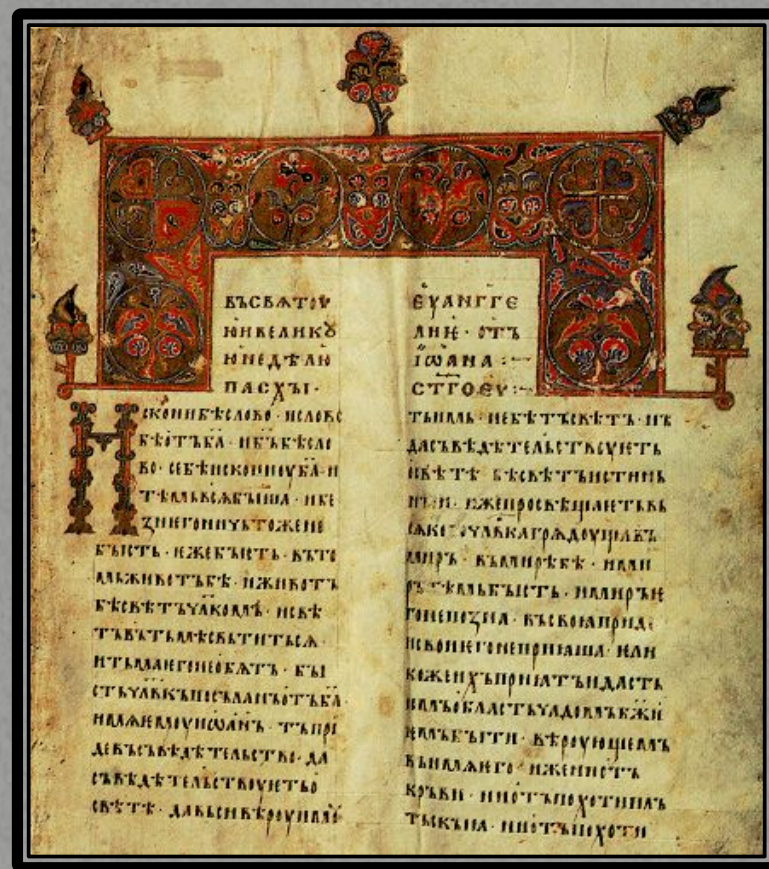 ВЪСВѦТОУ
ЮИВЕЛИКꙊ
ЮНЕДѢЛЮ
ПАСХЫ·
ИСКОНИБѢСЛОВО · ИСЛОВО
БѢОТЪБА · ИБЪБѢСЛО
ВО · СЕБѢИСКОНИОУБА · И
ТѢМЬВСѦБЫША · ИБЕ
ЗНЕГОНИЧЬТОЖЕНЕ
БЫСТЬ · ЕЖЕБЫСТЬ · ВЪТО
МЬЖИВОТЪБѢ · ИЖИВОТЪ
БѢСВѢТЪЧЛКОМЪ · ИСВѢ
ТЪВЪТЬМѢСВЬТИТЬСѦ ·
ИТЬМАЕГОНЕОБѦТЪ · БЫ
СТЬЧЛВКЪПОСЪЛАНЪОТЪБА ·
ИМѦЕМОУИѠАНЪ · ТЪПРІ
ДЕВЪСЪВѢДѢТЕЛЬСТВО · ДА
СЪВѢДѢТЕЛЬСТВОУЕТЬО
СВѢТѢ · ДАВЬСИВѢРОУИМ
ЕУАНГГЕ
ЛИѤ · ОТЪ
ІѠАНА :~
СТГОЕУ :~
ТЬИМЬ · НЕБѢТЪСВѢТЪ · НЪ
ДАСЪВѢДѢТЕЛЬСТВОУЕТЬ
ОСВѢТѢ · БѢСВѢТЪИСТИНЬ
НЪИ · ИЖЕПРОСВѢЩАЕТЬВЬ
СѦКОГОЧЛВКАГРѦДОУЩАВЪ
МИРЪ · ВЪМИРѢБѢ · ИМИ
РЪТѢМЬБЫСТЬ · ИМИРЪЕ
ГОНЕПОЗНА · ВЪСВОЯПРИДЕ
ИСВОИЕГОНЕПРИЯША · ЕЛИ
КОЖЕИХЪПРИЯТЪИДАСТЬ
ИМЪОБЛАСТЬЧАДОМЪБЖИ
ЕМЪБЫТИ · ВѢРОУЮЩЕМЪ
ВЪИМѦЕГО · ИЖЕНИОТЪ
КРЪВИ · НИОТЪПОХОТИПЛЪ
ТЬСКЫЯ · НИОТЪПОХОТИ